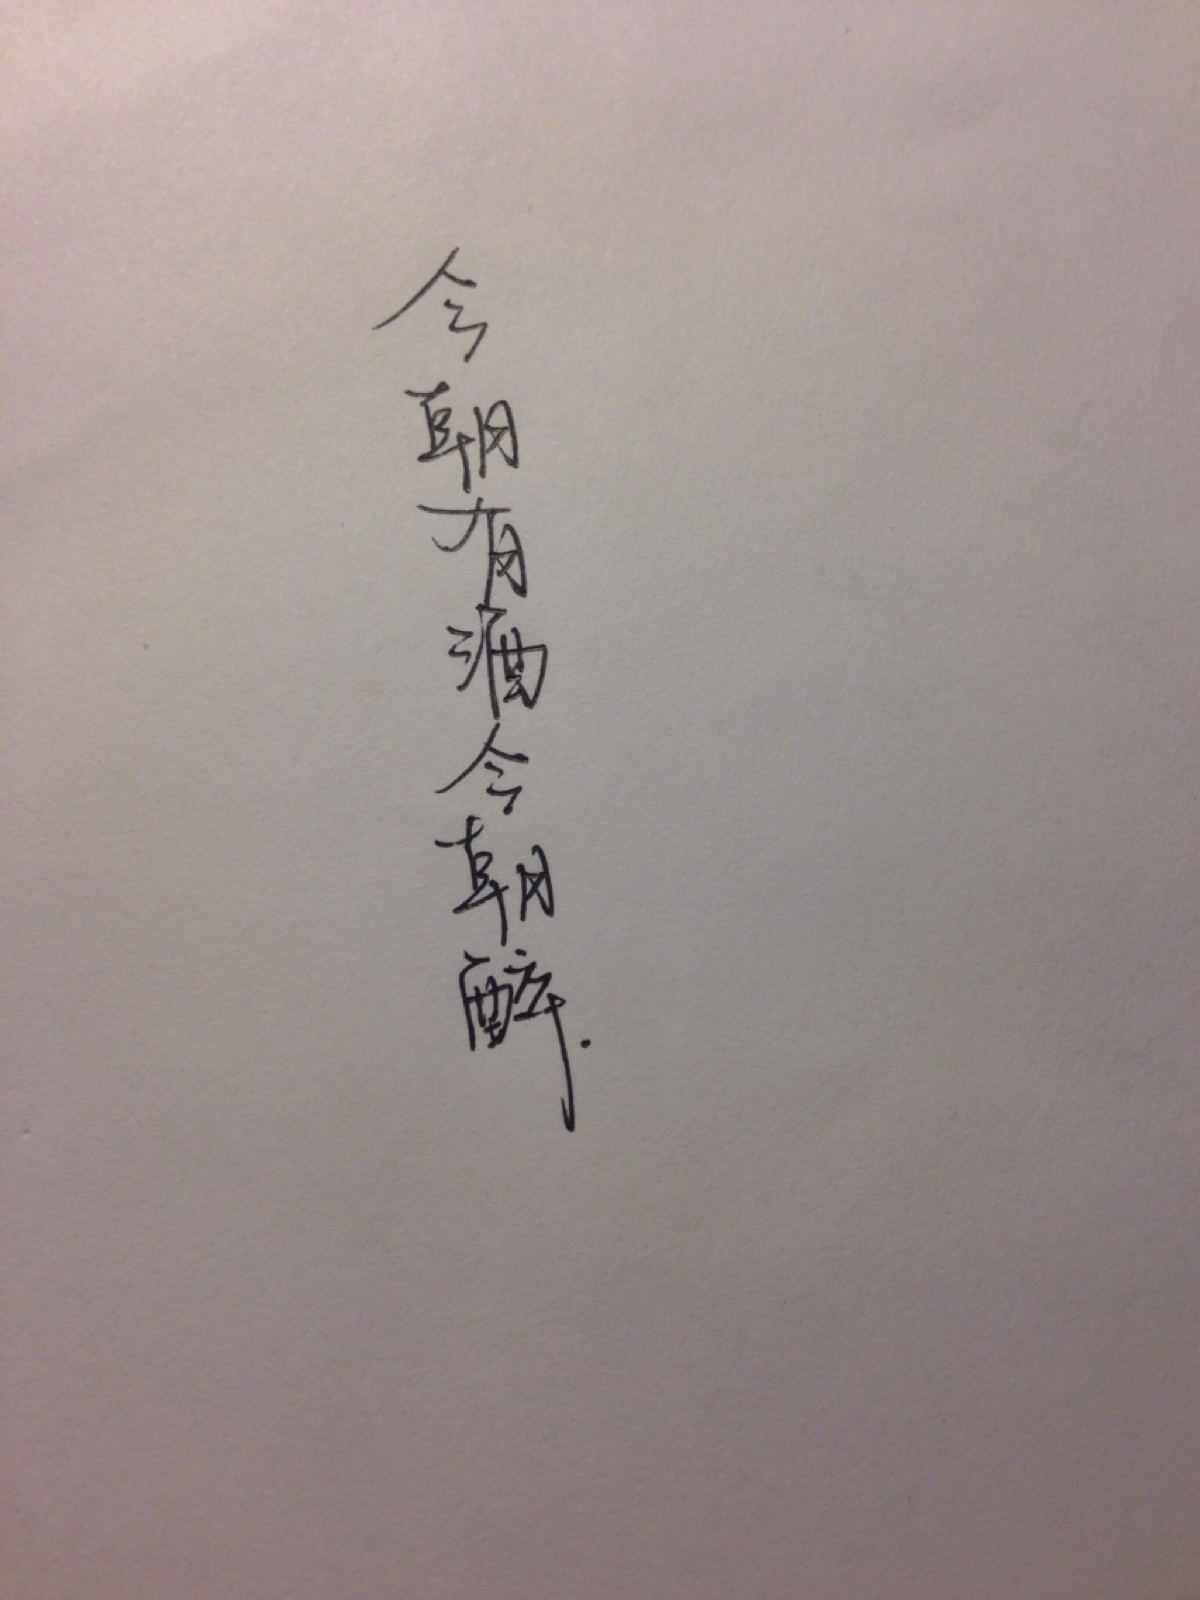 今朝有酒今朝醉.